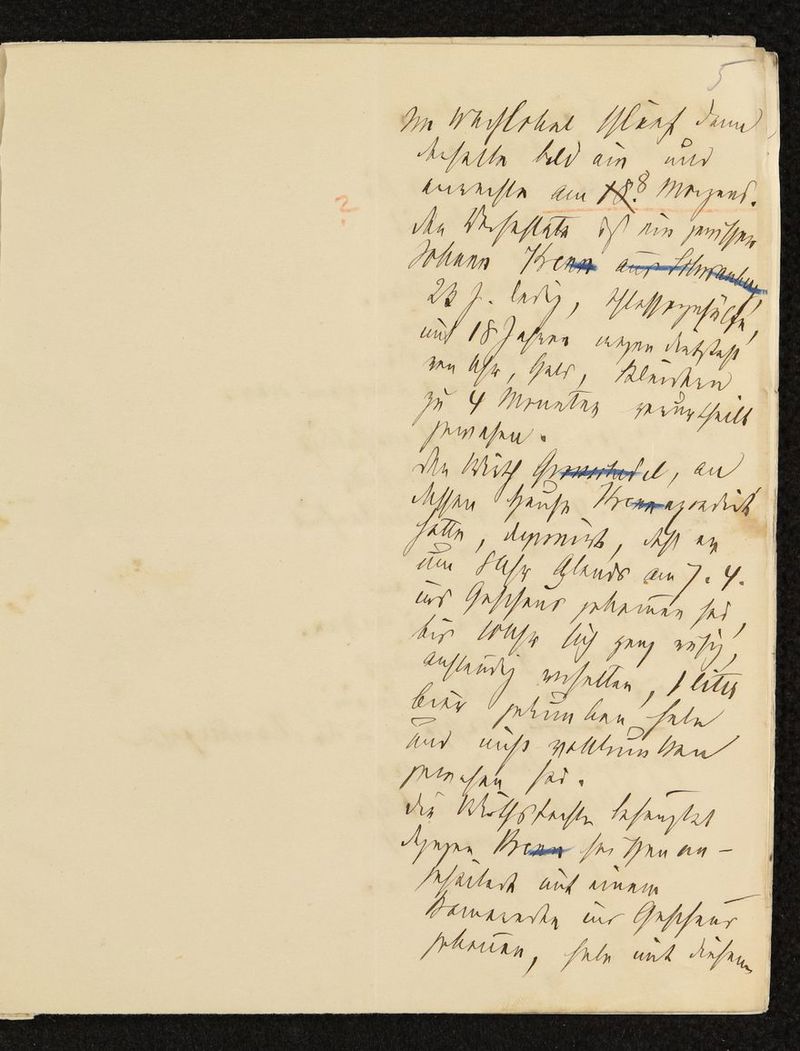 5
Im Wachlokal schlief dann
derselbe bald ein und
erwachte am 18. 8 Morgens.
?
Der Verhaftete ist ein gewisser
Johann Krenn aus
23 J. ledig, Schlossergehülfe,
mit 18 Jahren wegen Diebstahl
von Uhr, Geld, Kleidern
zu 4 Monaten verurtheilt
gewesen.
Der Wirth, an
dessen Hause Krenn excedirt
hatte, deponirt, daß er
um 8 Uhr Abends am 7. 4.
ins Gasthaus gekommen sei,
bis 10 Uhr sich ganz ruhig,
anständig verhalten, 1 Liter
Bier getrunken habe
und nicht volltrunken
gewesen sei.
Die Wirthstochter behauptet
dagegen Krenn sei schon an-
geheitert mit einem
Kameraden ins Gasthaus
gekommen, habe mit diesem